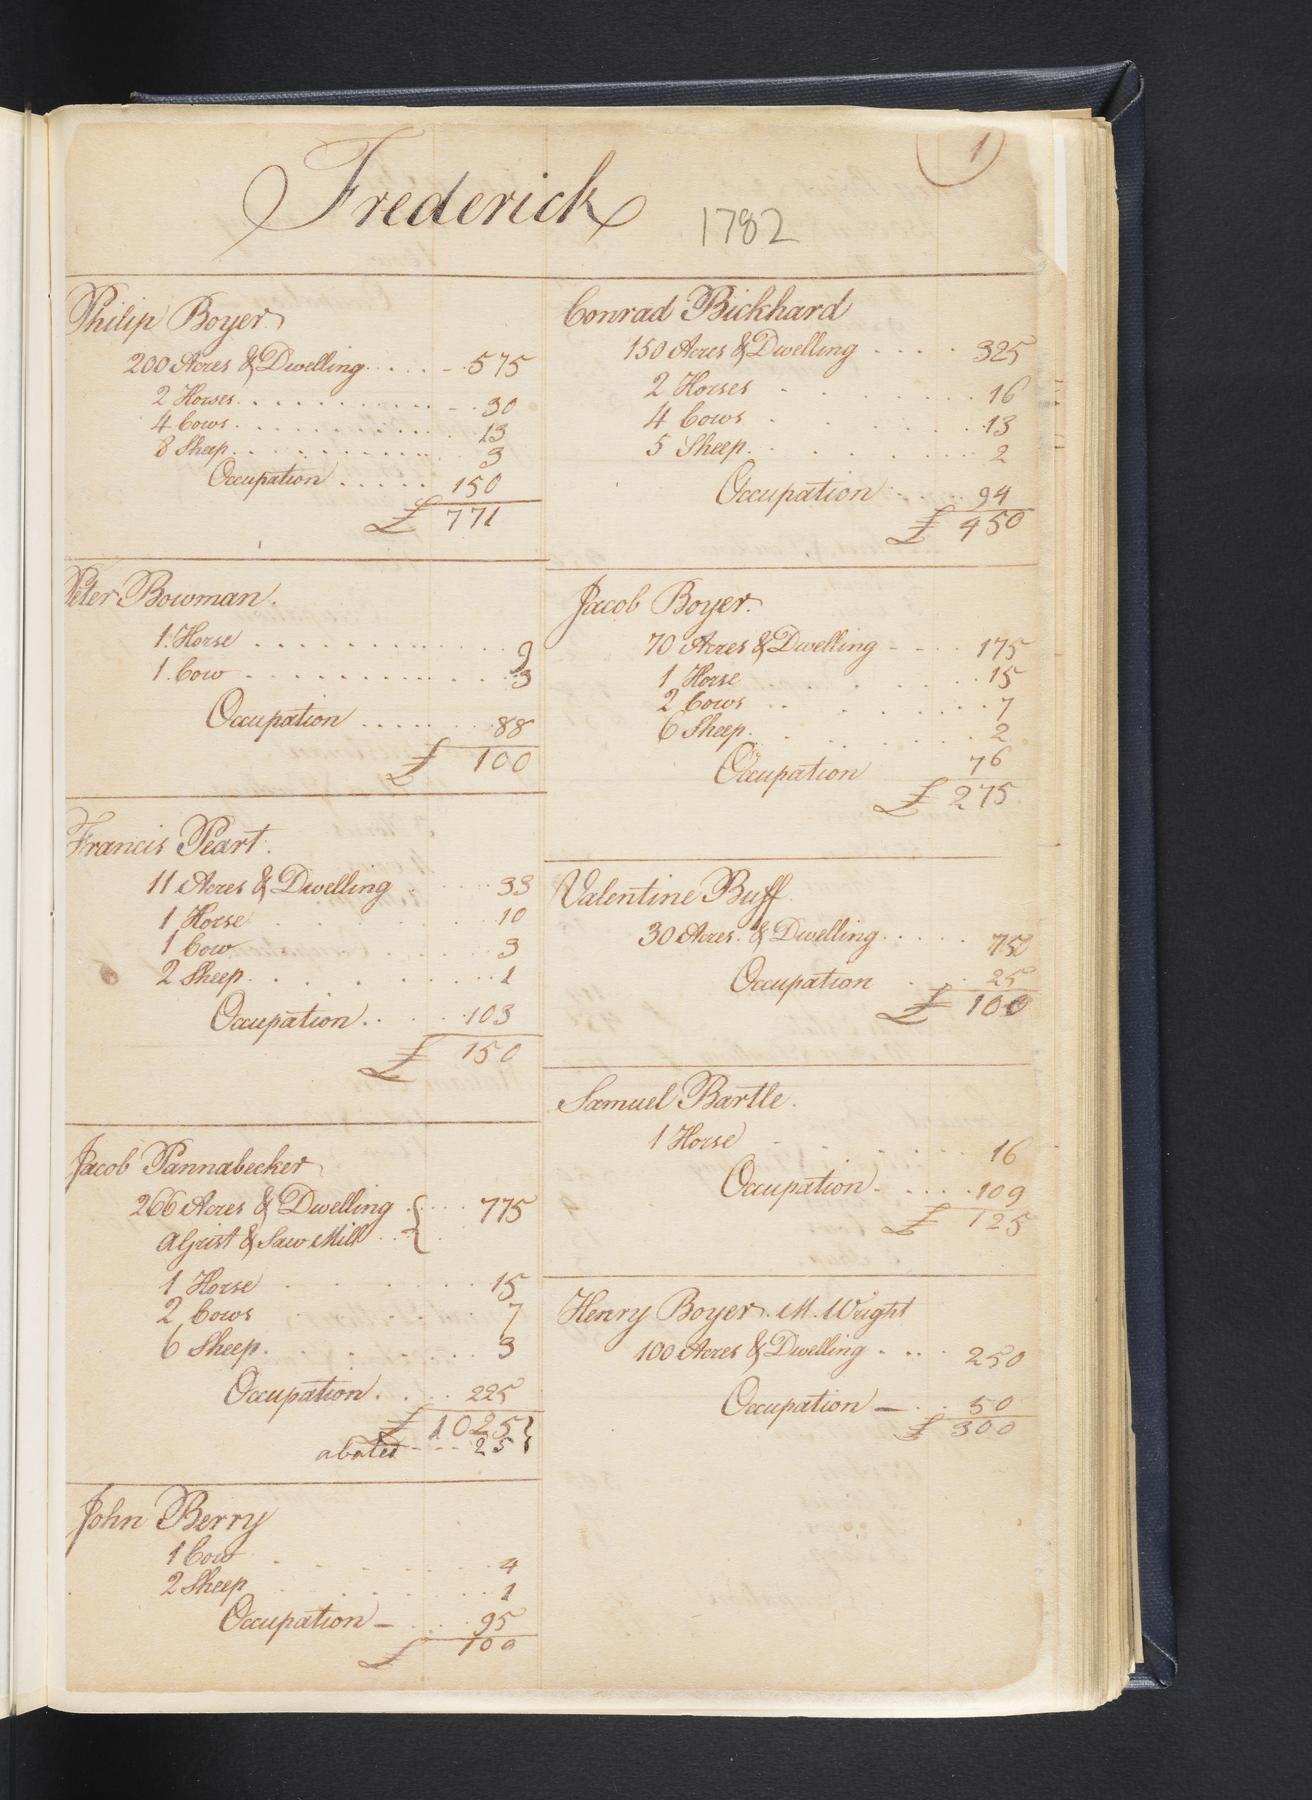 1
Frederick 1782
Philip Boyer
200 Acres & Dwelling 575
2 Horses 30
4 Cows 13
8 Sheep 3
Occupation 150
£ 771
Peter Bowman.
1 Horse 9
1 Cow 3
Occupation 88
£ 100
Francis Peart.
11 Acres & Dwelling 33
1 Horse 10
1 Cow 3
2 Sheep 1
Occupation 103
£ 150
Jacob Pannabecker
266 Acres & Dwelling 775
a Grist & Saw Mill
1 Horse 15
2 Cows 7
6 Sheep 3
Occupation 225
£ 1025
abated 25
John Berry
1 Cow 4
2 Sheep 1
Occupation 95
£ 100
Conrad Bickhard
150 Acres & Dwelling 325
2 Horses 16
4 Cows 13
5 Sheep 2
Occupation 94
£ 450
Jacob Boyer.
70 Acres & Dwelling 175
1 Horse 15
2 Cows 7
6 Sheep 2
Occupation 76
£ 275
Valentine Buff
30 Acres & Dwelling 75
Occupation 25
£ 100
Samuel Bartle.
1 Horse 16
Occupation 109
£ 125
Henry Boyer M. Wright
100 Acres & Dwelling 250
Occupation 50
£ 300